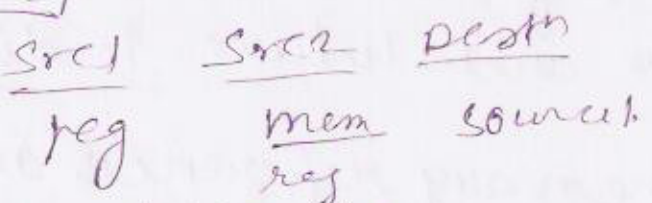 Src1 Src2 Destn
reg mem source1.
reg